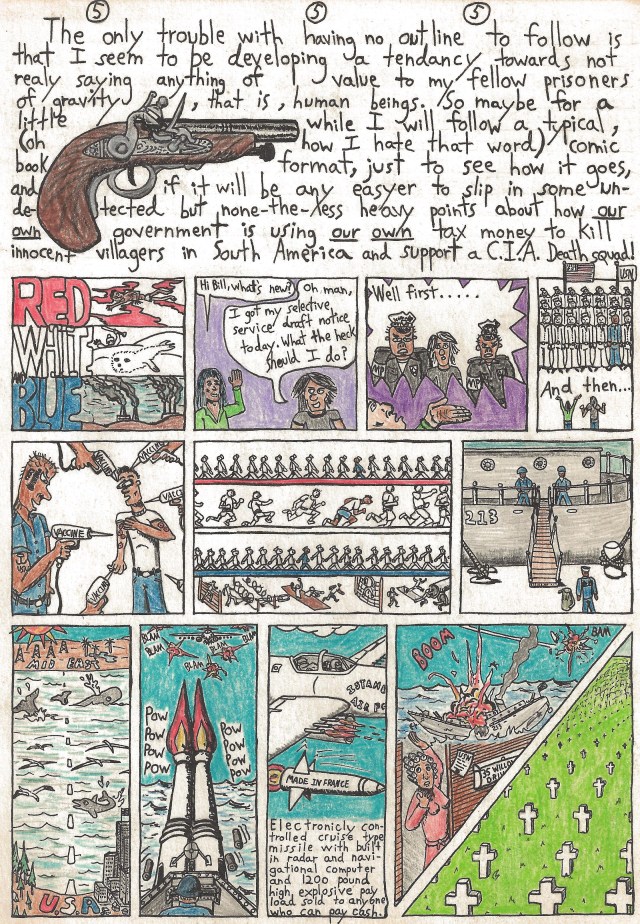 5 5 5
The only trouble with having no outline to follow is
that I seem to be developing a tendancy towards not
realy saying anything of value to my fellow prisoners
of gravity, that is, human beings. So maybe for a
little while I will follow a typical,
(oh how I hate that word) comic
book format, just to see how it goes,
and if it will be any easyer to slip in some un-
de- tected but none-the-less heavy points about how our
own government is using our own tax money to kill
innocent villagers in South America and support a C.I.A. Death squad!
RED
WHITE
AND
BLUE
Hi Bill, what's new?
Oh man,
I got my selective
service draft notice
today. What the heck
should I do?
Well first.....
MP
MP
USN
And then...
VACCINE
VACCINE
VACCI
VACCI
213
MID EAST
U.S.A
BLAM
BLAM
BLAM
BLAM
BLAM
POW
POW
POW
POW
POW
POW
POW
POW
AIR
MADE IN FRANCE
Electronicly con-
trolled cruise type
missile with built
in radar and navi-
gational computer
and 1200 pound
high, explosive pay
load sold to anyone
who can pay cash.
BOOM
BAM
213
35 WILLOW